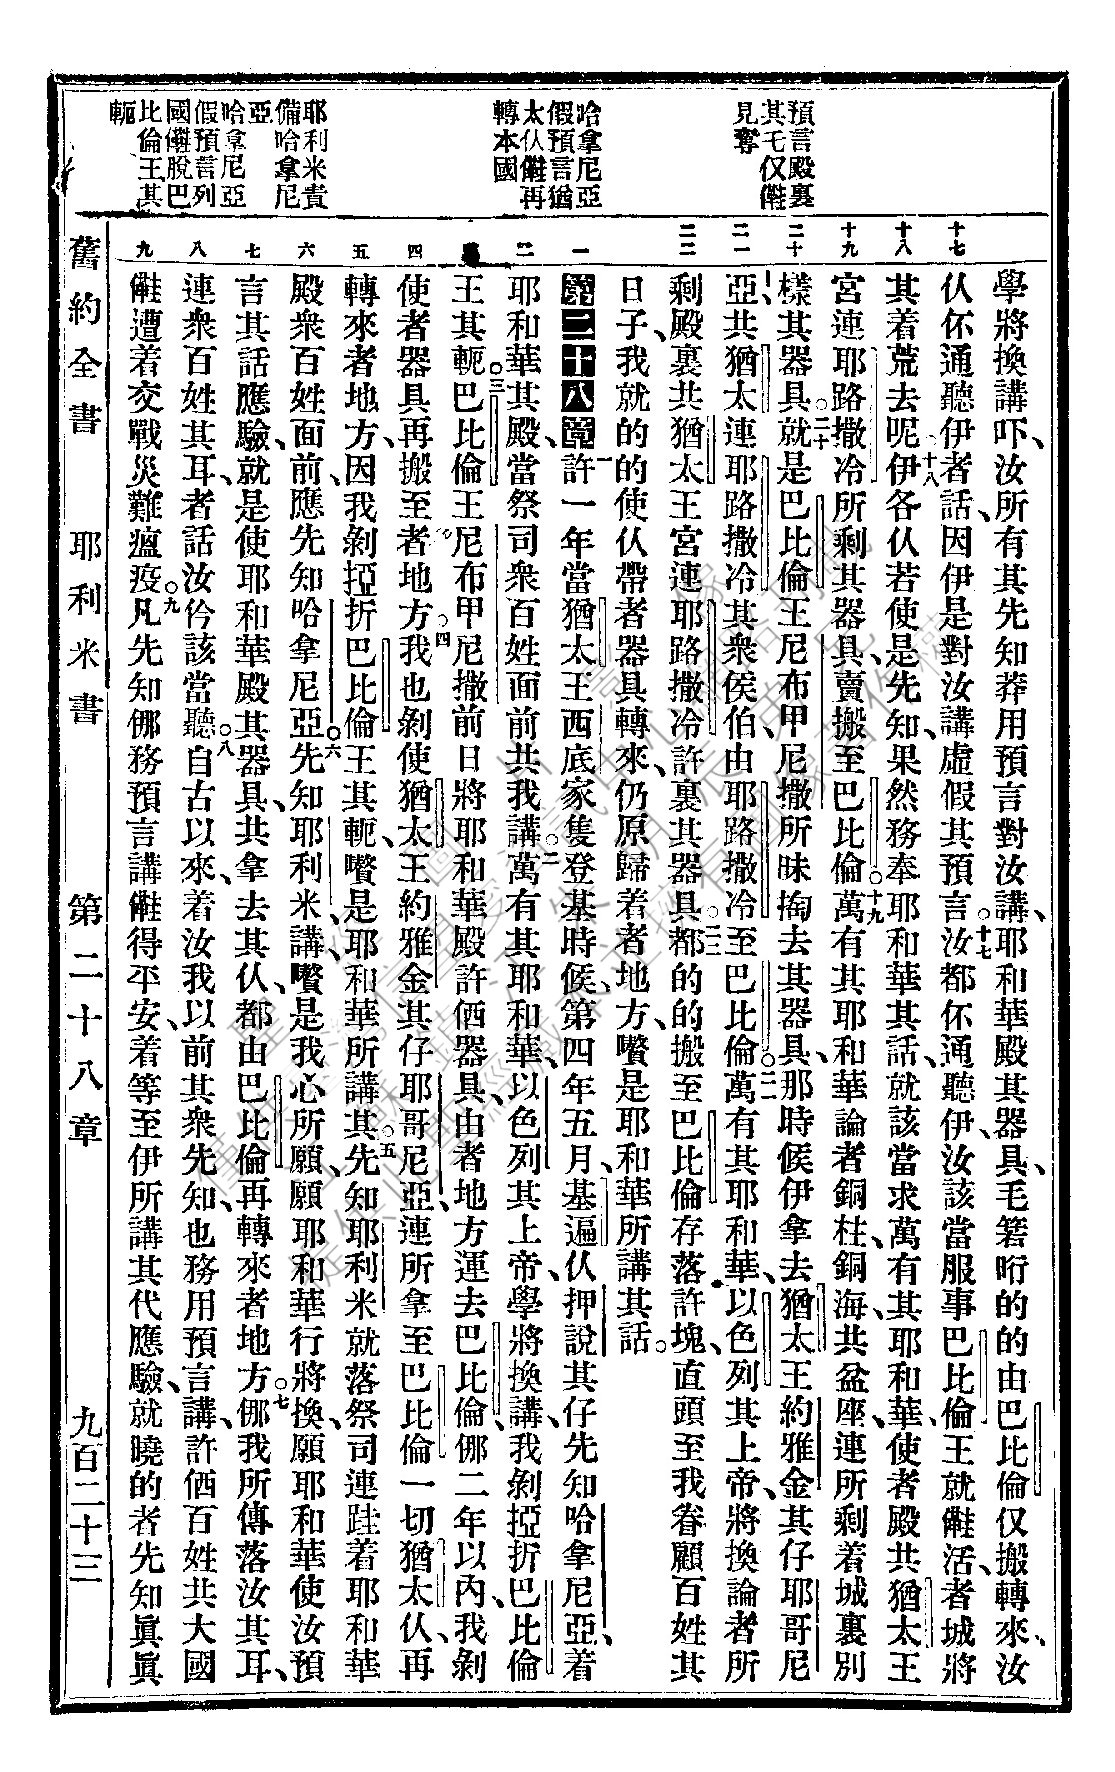 預言殿裏
其乇仅𠆧
見奪
哈拿尼亞
假預言猶
太仈𠆧再
轉本國
耶利米責
備哈拿尼
亞
哈拿尼亞
假預言列
國𠆧脫巴
比倫王其
軛
十七 十八 十九 二十 二一 二二 一 二 四 五 六 七 八 九
學將換講吓、汝所有其先知莽用預言對汝講、耶和華殿其器具、毛箬𣍐的的由巴比倫仅搬轉來、汝
仈伓通聽伊者話、因伊是對汝講虛假其預言。十七汝都伓通聽伊、汝該當服事巴比倫王就𠆧活、者城將
其着荒去呢。十八伊各仈若使是先知、果然務奉耶和華其話、就該當求萬有其耶和華、使者殿共猶太王
宮連耶路撒冷所剩其器具、賣搬至巴比倫。十九萬有其耶和華論者銅柱、銅海、共盆座、連所剩着城裏別
樣其器具、二十就是巴比倫王尼布甲尼撒所昧掏去其器具、那時候伊拿去猶太王約雅金其仔耶哥尼
亞、共猶太連耶路撒冷其衆侯伯、由耶路撒冷至巴比倫。二一萬有其耶和華、以色列其上帝、將換論者所
剩殿裏共猶太王宮連耶路撒冷許裏其器具。二二都的的搬至巴比倫、存落許塊、直頭至我眷顧百姓其
日子、我就的的使仈帶者器具轉來、仍原歸着者地方、嚽是耶和華所講其話。
第二十八章 一許一年當猶太王西底家隻登基時候、第四年五月、基遍仈押說其仔先知哈拿尼亞、着
耶和華其殿、當祭司衆百姓面前共我講。二萬有其耶和華、以色列其上帝、學將換講、我剝掗折巴比倫
王其軛。三巴比倫王尼布甲尼撒前日將耶和華殿許价器具、由者地方運去巴比倫、㑚二年以內、我剝
使者器具再搬至者地方。四我也剝使猶太王約雅金其仔耶哥尼亞、連所拿至巴比倫一切猶太仈、再
轉來者地方、因我剝掗折巴比倫王其軛、嚽是耶和華所講其。五先知耶利米就落祭司連跬着耶和華
殿衆百姓面前、應先知哈拿尼亞。六先知耶利米講、嚽是我心所願、願耶和華行將換、願耶和華使汝預
言其話應驗、就是使耶和華殿其器具、共拿去其仈、都由巴比倫再轉來者地方。七㑚我所傳落汝其耳、
連衆百姓其耳、者話汝伱該當聽。八自古以來、着汝我以前其衆先知、也務用預言講、許价百姓共大國
𠆧遭着交戰災難瘟疫。九凡先知㑚務預言講𠆧得平安、着等至伊所講其代應驗、就曉的者先知眞眞
舊約全書 耶利米書 第二十八章 九百二十三